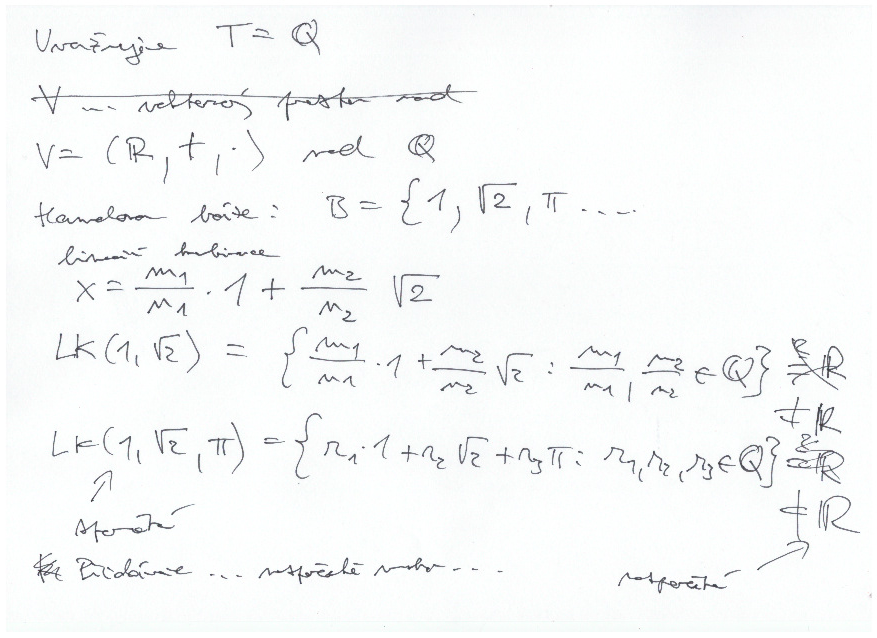 Uvažujme T = Q
V ... vektorový prostor nad
V = (R, +, ·) nad Q
Hamelova báze: B = {1, √2, π ....
lineární kombinace
x = m₁/n₁ · 1 + m₂/n₂ √2
LK(1, √2) = {m₁/n₁ · 1 + m₂/n₂ √2 : m₁/n₁, m₂/n₂ ∈ Q} ≟ R
≠ R
LK(1, √2, π) = {r₁ · 1 + r₂ √2 + r₃ π : r₁, r₂, r₃ ∈ Q} ≟ R
≠ R
spočetná
nespočetná
Přidáme ... nespočetně mnoho ....